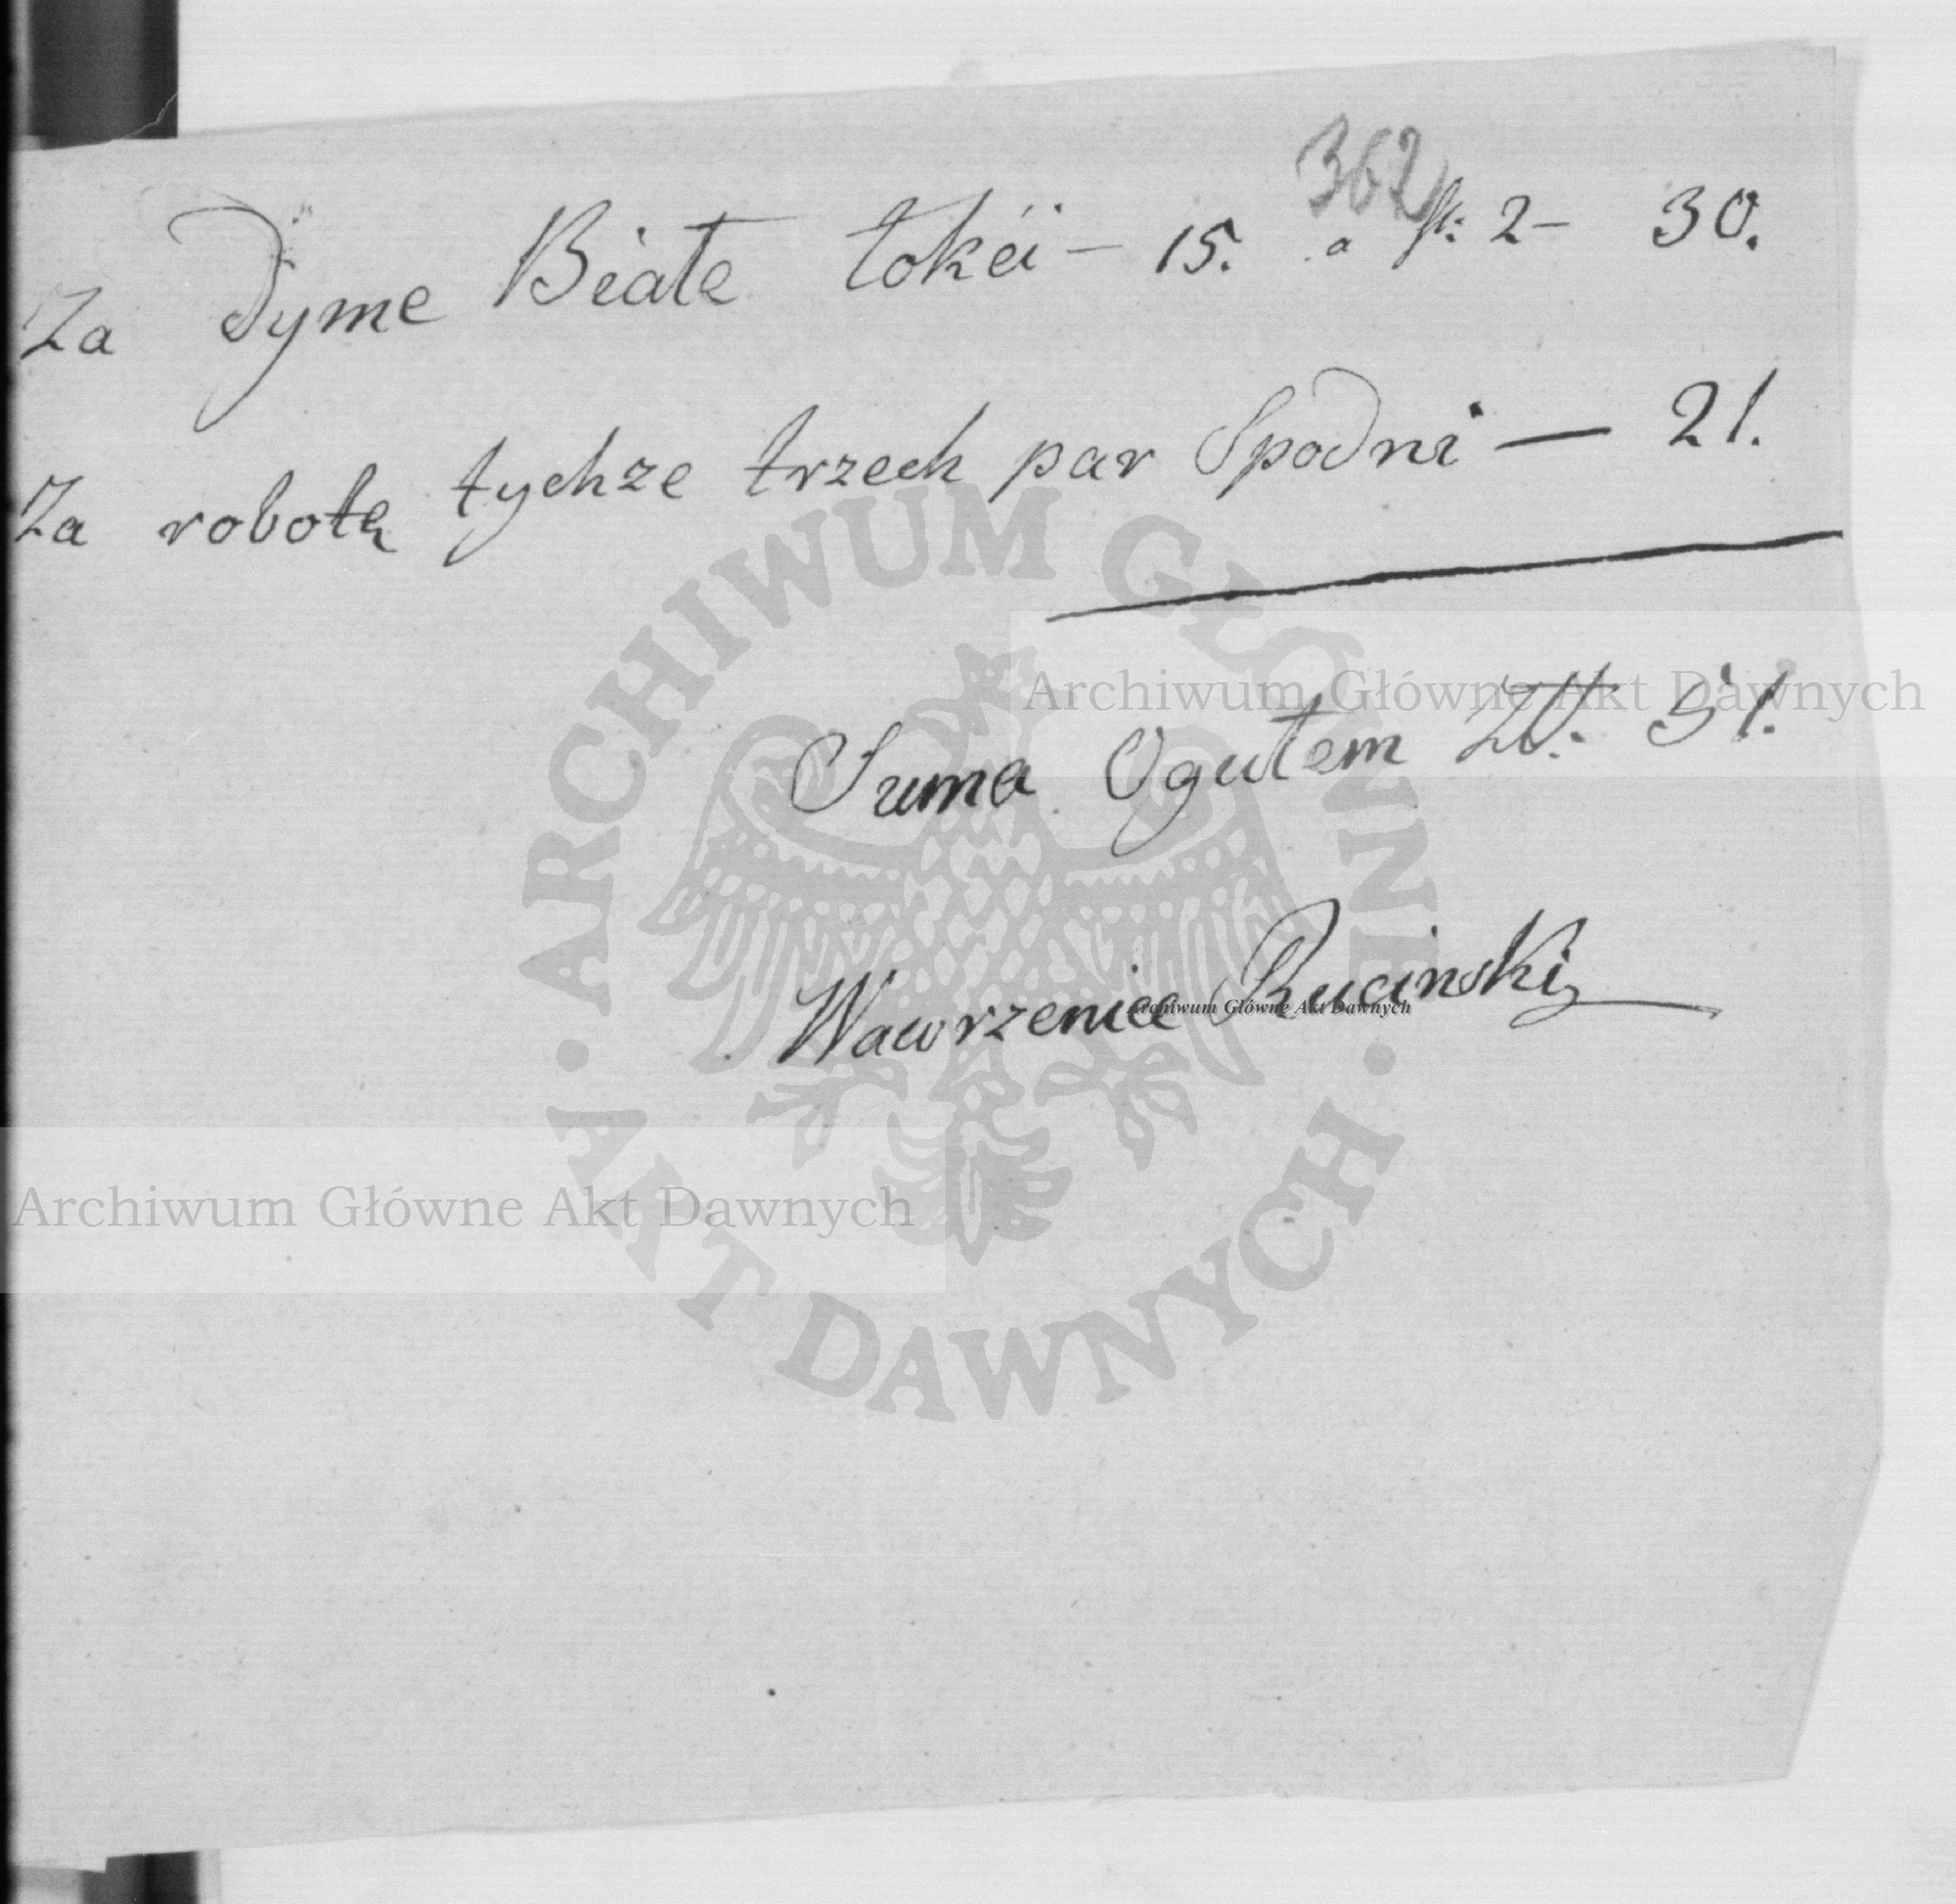 362
Za Dyme Białe łokéi - 15. a fl: 2 - 30.
Za robotę tychze trzech par Spodni — 21.
Suma Ogułem Zł: 51.
Wawrzeniec Rucinski
ARCHIWUM GŁÓWNE
· AKT DAWNYCH ·
Archiwum Główne Akt Dawnych
Archiwum Główne Akt Dawnych
Archiwum Główne Akt Dawnych